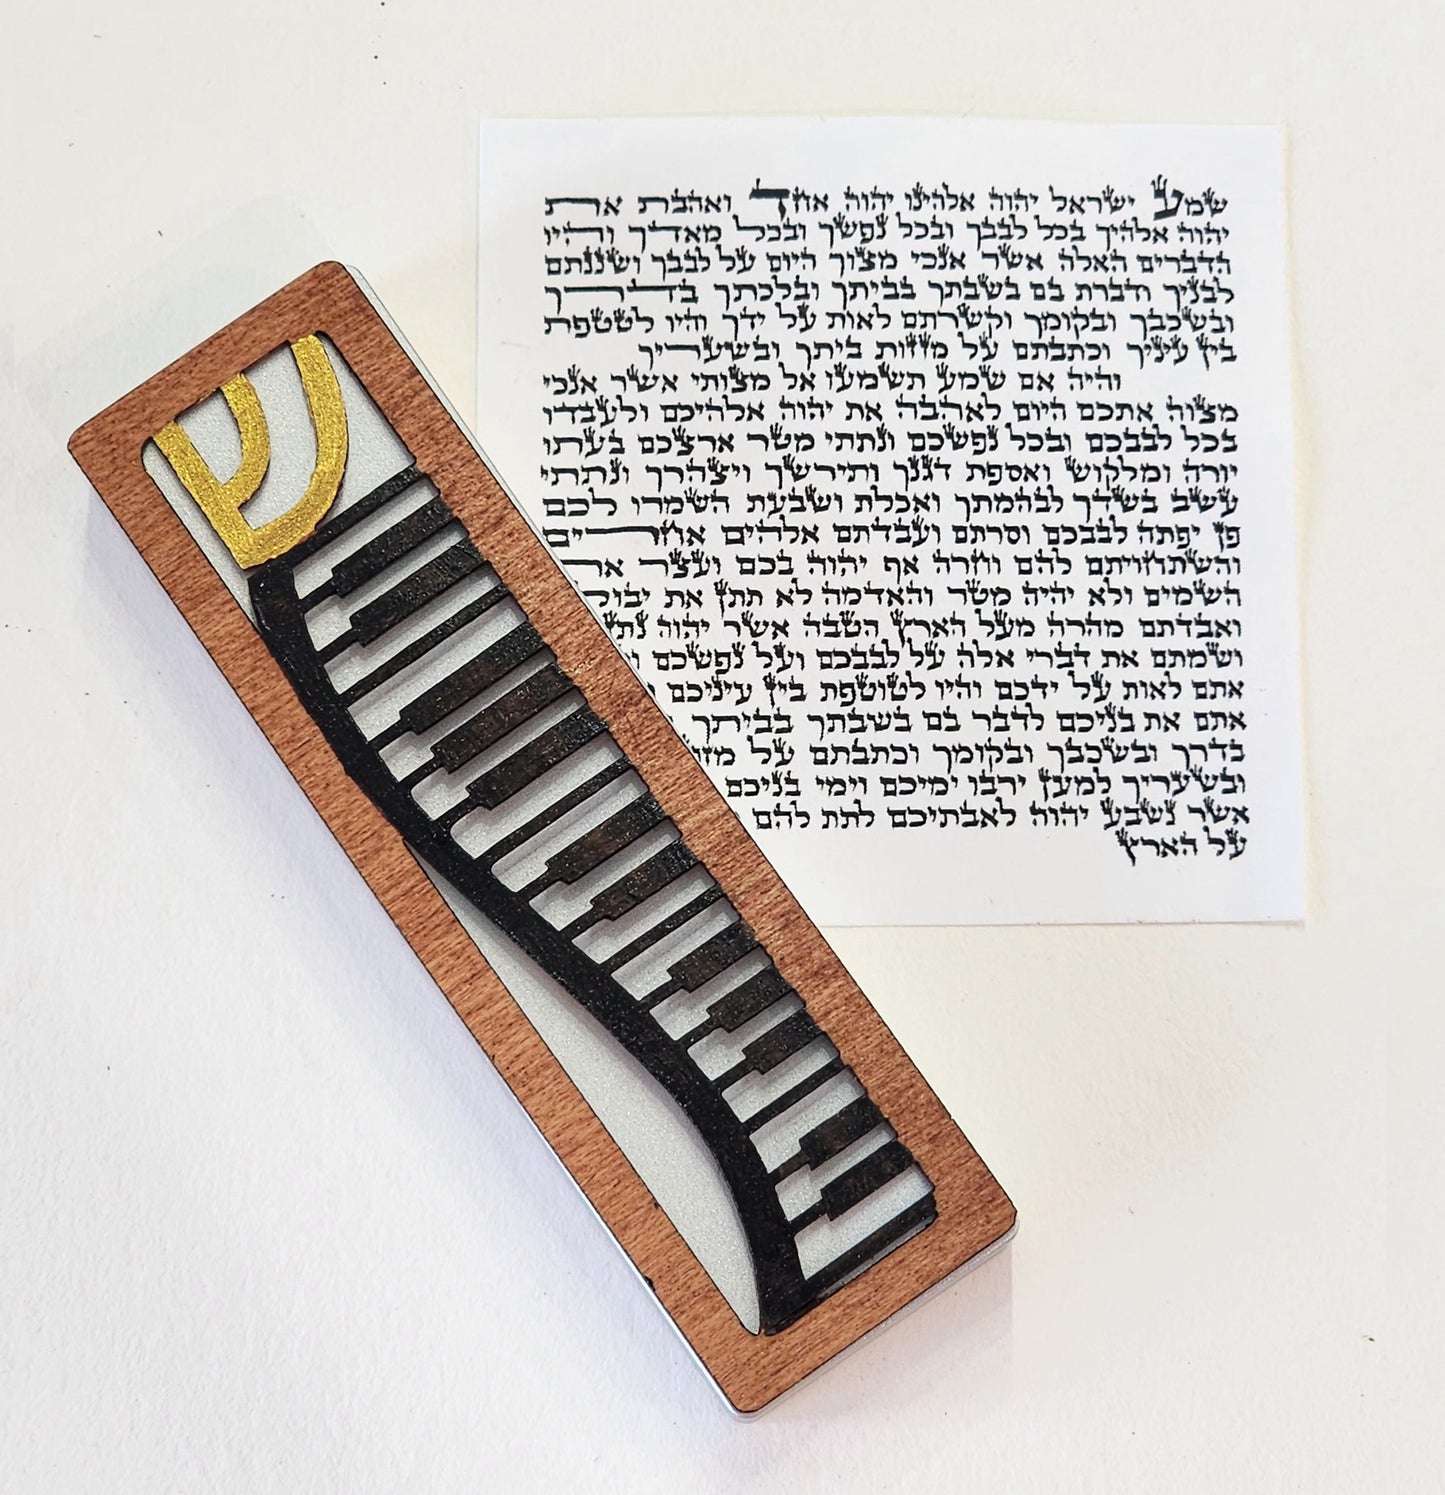 ש
שמע ישראל יהוה אלהינו יהוה אחד ואהבת את
יהוה אלהיך בכל לבבך ובכל נפשך ובכל מאדך והיו
הדברים האלה אשר אנכי מצוך היום על לבבך ושננתם
לבניך ודברת בם בשבתך בביתך ובלכתך בדרך
ובשכבך ובקומך וקשרתם לאות על ידך והיו לטטפת
בין עיניך וכתבתם על מזזות ביתך ובשעריך
והיה אם שמע תשמעו אל מצותי אשר אנכי
מצוה אתכם היום לאהבה את יהוה אלהיכם ולעבדו
בכל לבבכם ובכל נפשכם ונתתי מטר ארצכם בעתו
יורה ומלקוש ואספת דגנך ותירשך ויצהרך ונתתי
עשב בשדך לבהמתך ואכלת ושבעת השמרו לכם
פן יפתה לבבכם וסרתם ועבדתם אלהים אחרים
והשתחויתם להם וחרה אף יהוה בכם ועצר את
השמים ולא יהיה מטר והאדמה לא תתן את
ואבדתם מהרה מעל הארץ הטבה אשר יהוה
ושמתם את דברי אלה על לבבכם ועל נפשכם
אתם לאות על ידכם והיו לטוטפת בין עיניכם
אתם את בניכם לדבר בם בשבתך בביתך
בדרך ובשכבך ובקומך וכתבתם על
ובשעריך למען ירבו ימיכם וימי בניכם
אשר נשבע יהוה לאבתיכם לתת להם
על הארץ